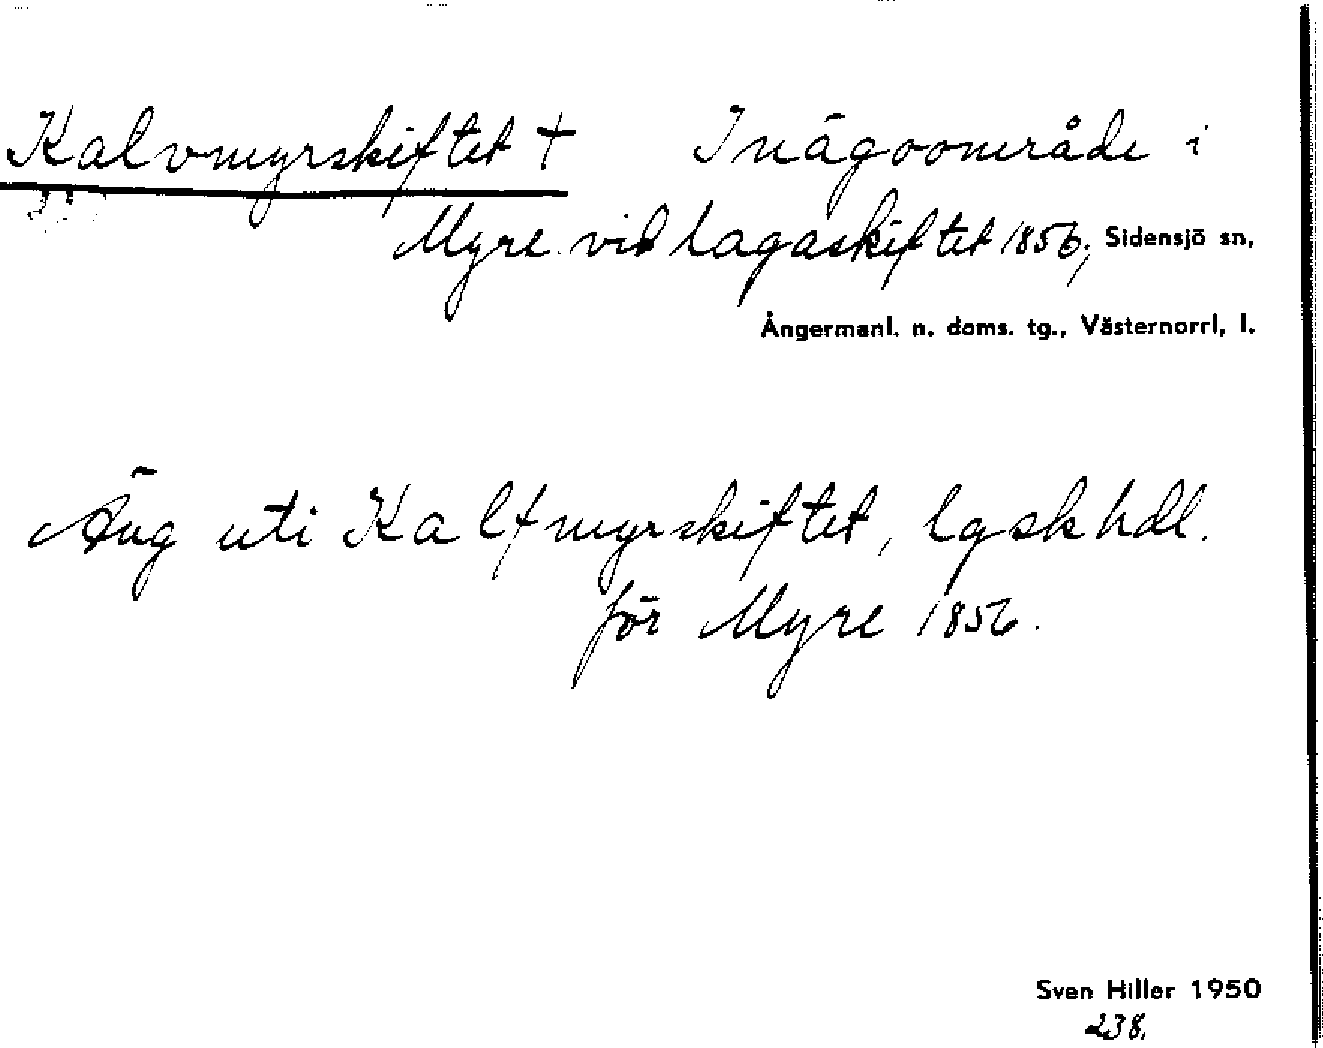 Kalvmyrskiftet † Inägoområde i
Myre vid lagaskiftet 1856, Sidensjö sn,
Ångermanl. n. doms. tg., Västernorrl, l.
Äng uti Kalfmyrskiftet, lgsk hdl.
för Myre 1856.
Sven Hiller 1950
238.